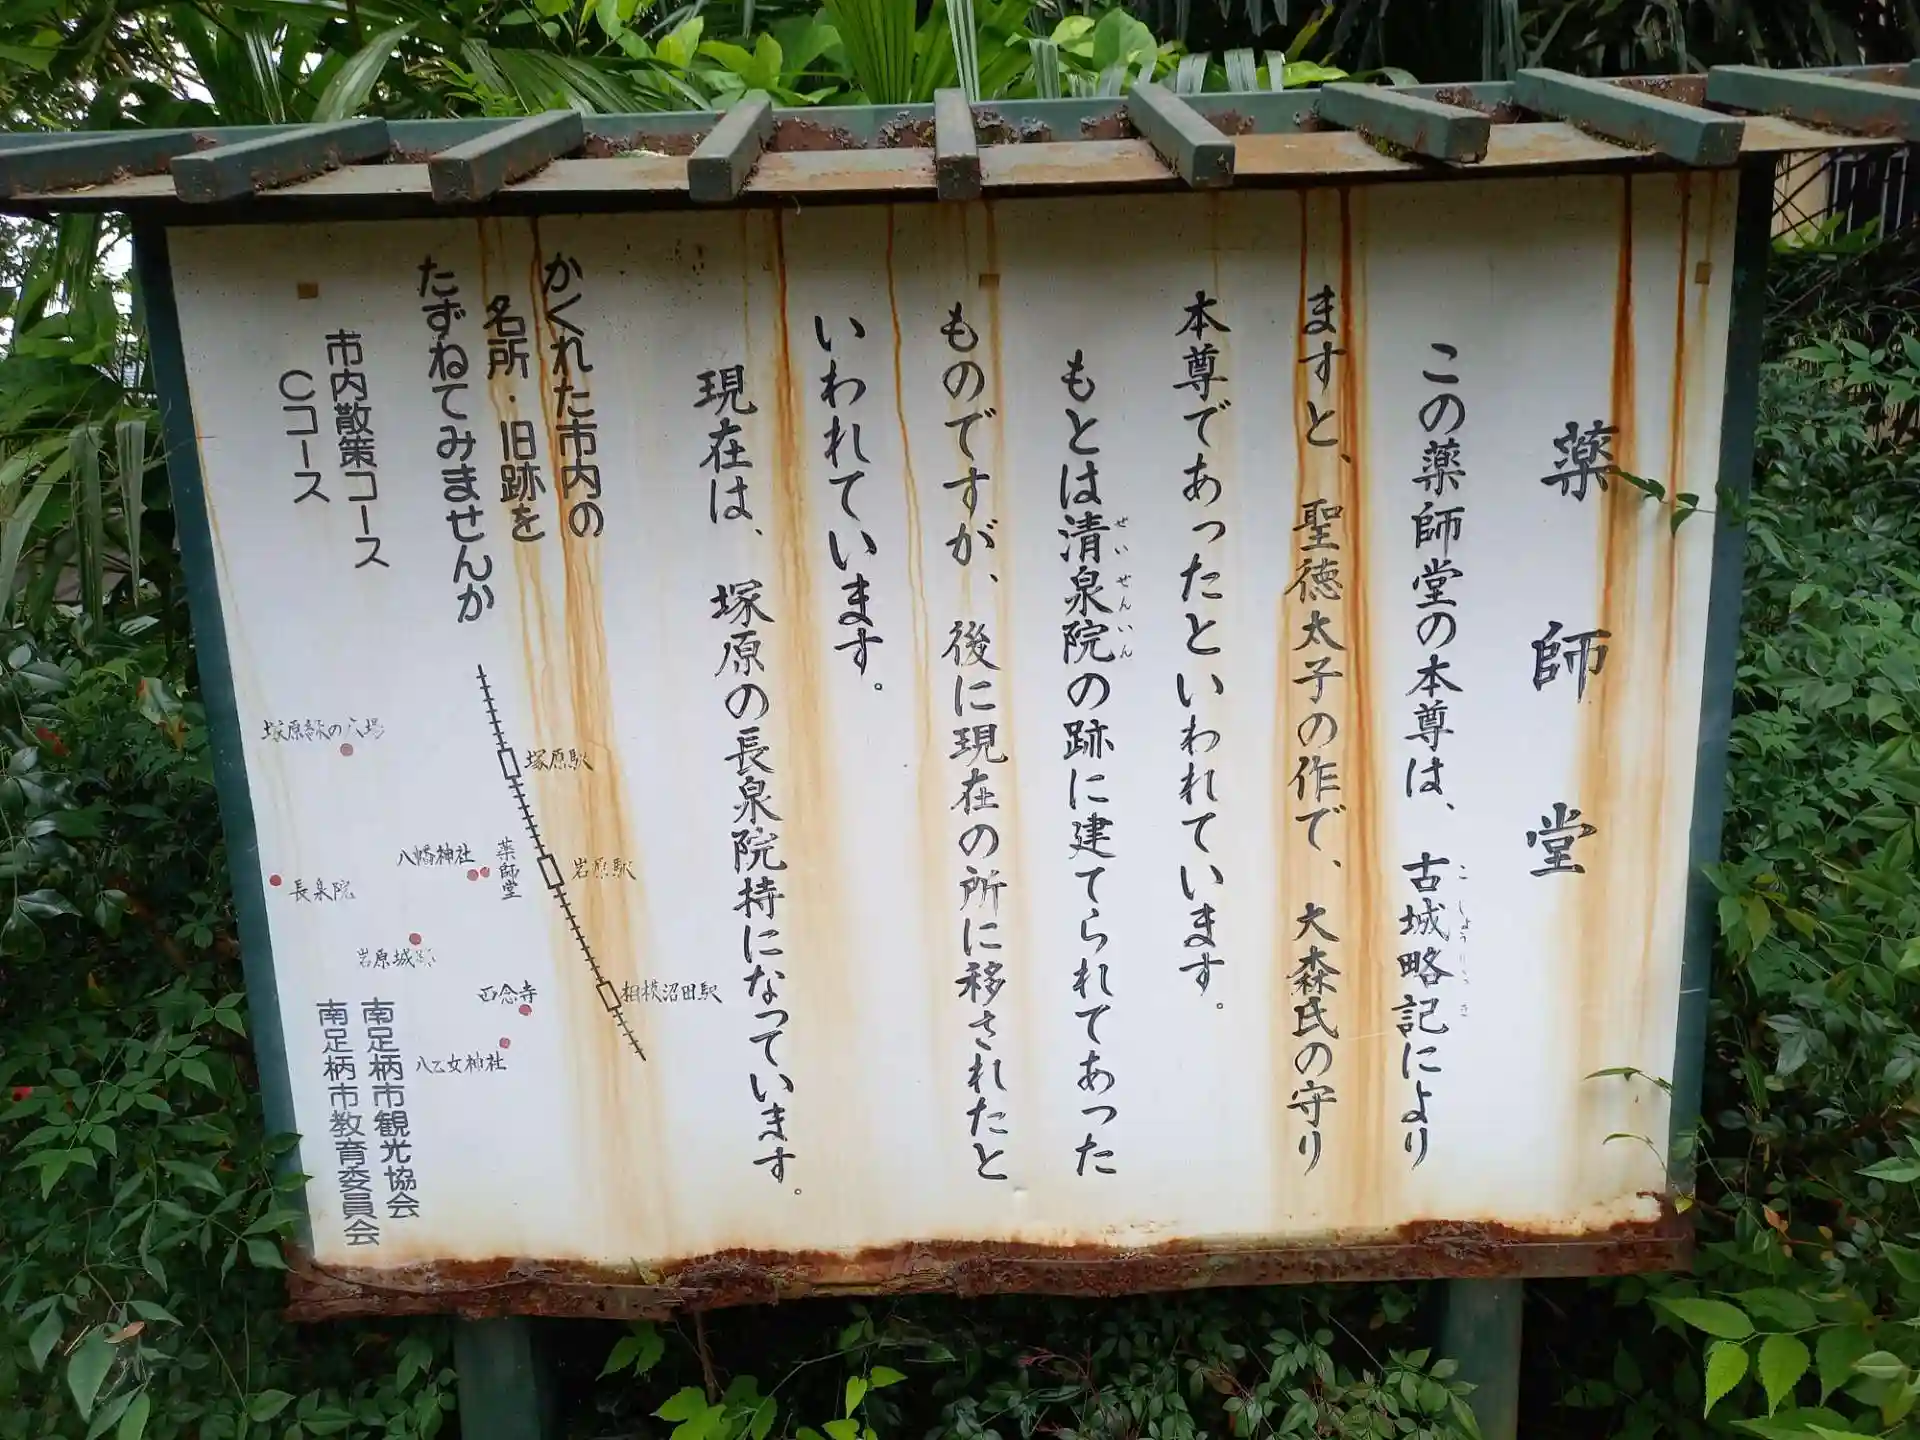 薬師堂
この薬師堂の本尊は、古城略記により
こじょうりゃっき
ますと、聖徳太子の作で、大森氏の守り
本尊であったといわれています。
もとは清泉院の跡に建てられてあった
せいせんいん
ものですが、後に現在の所に移されたと
いわれています。
現在は、塚原の長泉院持になっています。
かくれた市内の
名所・旧跡を
たずねてみませんか
市内散策コース
Cコース
塚原駅
岩原駅
相模沼田駅
薬師堂
八幡神社
長泉院
岩原城
西念寺
八乙女神社
南足柄市観光協会
南足柄市教育委員会